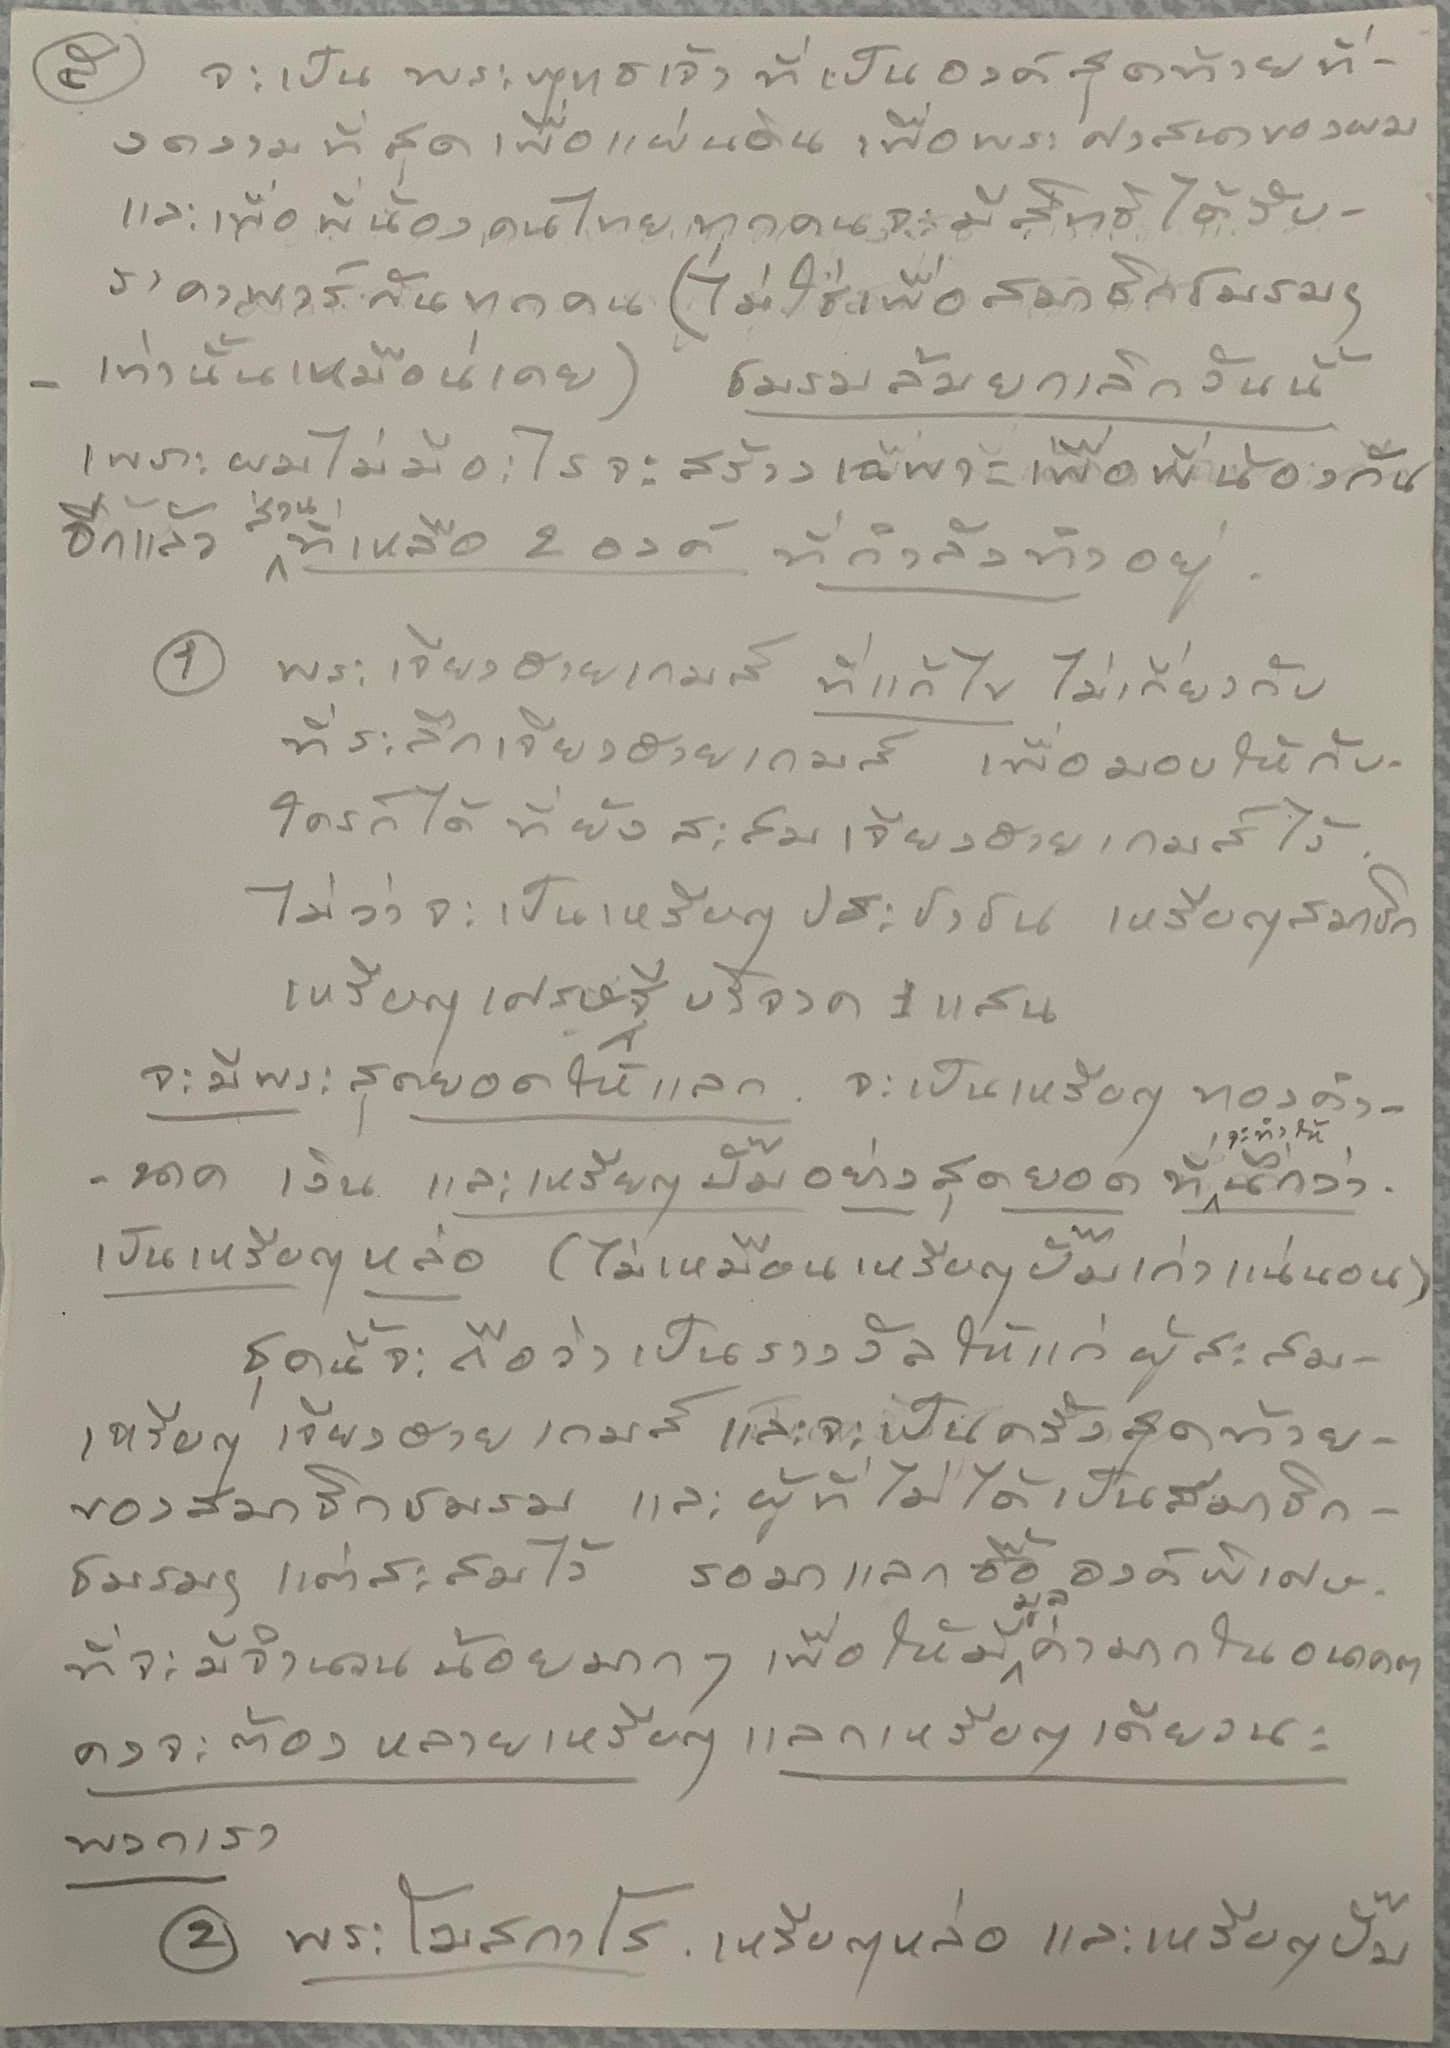 ๕ จะเป็น พระพุทธเจ้า ที่เป็นองค์สุดท้ายที่-
งดงามที่สุด เพื่อแผ่นดิน เพื่อพระศาสนาของผม
และเพื่อพี่น้องคนไทยทุกคนจะมีสิทธิได้รับ-
ราคาพาร์กันทุกคน (ไม่ใช่เพื่อสมาชิกชมรมฯ
- เท่านั้นเหมือนเคย) ชมรมล้มยกเลิกวันนี้
เพราะผมไม่มีอะไรจะสร้างเฉพาะเพื่อพี่น้องกัน
อีกแล้ว ส่วนที่เหลือ 2 องค์ ที่กำลังทำอยู่.
1 พระเจียงฮายเกมส์ ที่แก้ไข ไม่เกี่ยวกับ
ที่ระลึกเจียงฮายเกมส์ เพื่อมอบให้กับ-
ใครก็ได้ ที่ยัง สะสม เจียงฮายเกมส์ไว้.
ไม่ว่าจะเป็นเหรียญประชาชน เหรียญสมาชิก
เหรียญเศรษฐีบริจาค 1 แสน
จะมีพระสุดยอดให้แลก. จะเป็นเหรียญ ทองคำ-
- นาค เงิน และเหรียญปั๊มอย่างสุดยอด ที่จะทำให้นึกว่า.
เป็นเหรียญหล่อ (ไม่เหมือนเหรียญปั๊มเก่าแน่นอน)
ชุดนี้จะถือว่าเป็นรางวัลให้แก่ผู้สะสม-
เหรียญ เจียงฮายเกมส์ และจะเป็นครั้งสุดท้าย-
ของสมาชิกชมรม และผู้ที่ไม่ได้เป็นสมาชิก-
ชมรมฯ แต่สะสมไว้ รอมาแลกซื้อองค์พิเศษ.
ที่จะมีจำนวนน้อยมากๆ เพื่อให้มีมูลค่ามากในอนาคต
คงจะต้องหลายเหรียญแลกเหรียญเดียวนะ
พวกเรา
2 พระโมสกาโร. เหรียญหล่อ และเหรียญปั๊ม